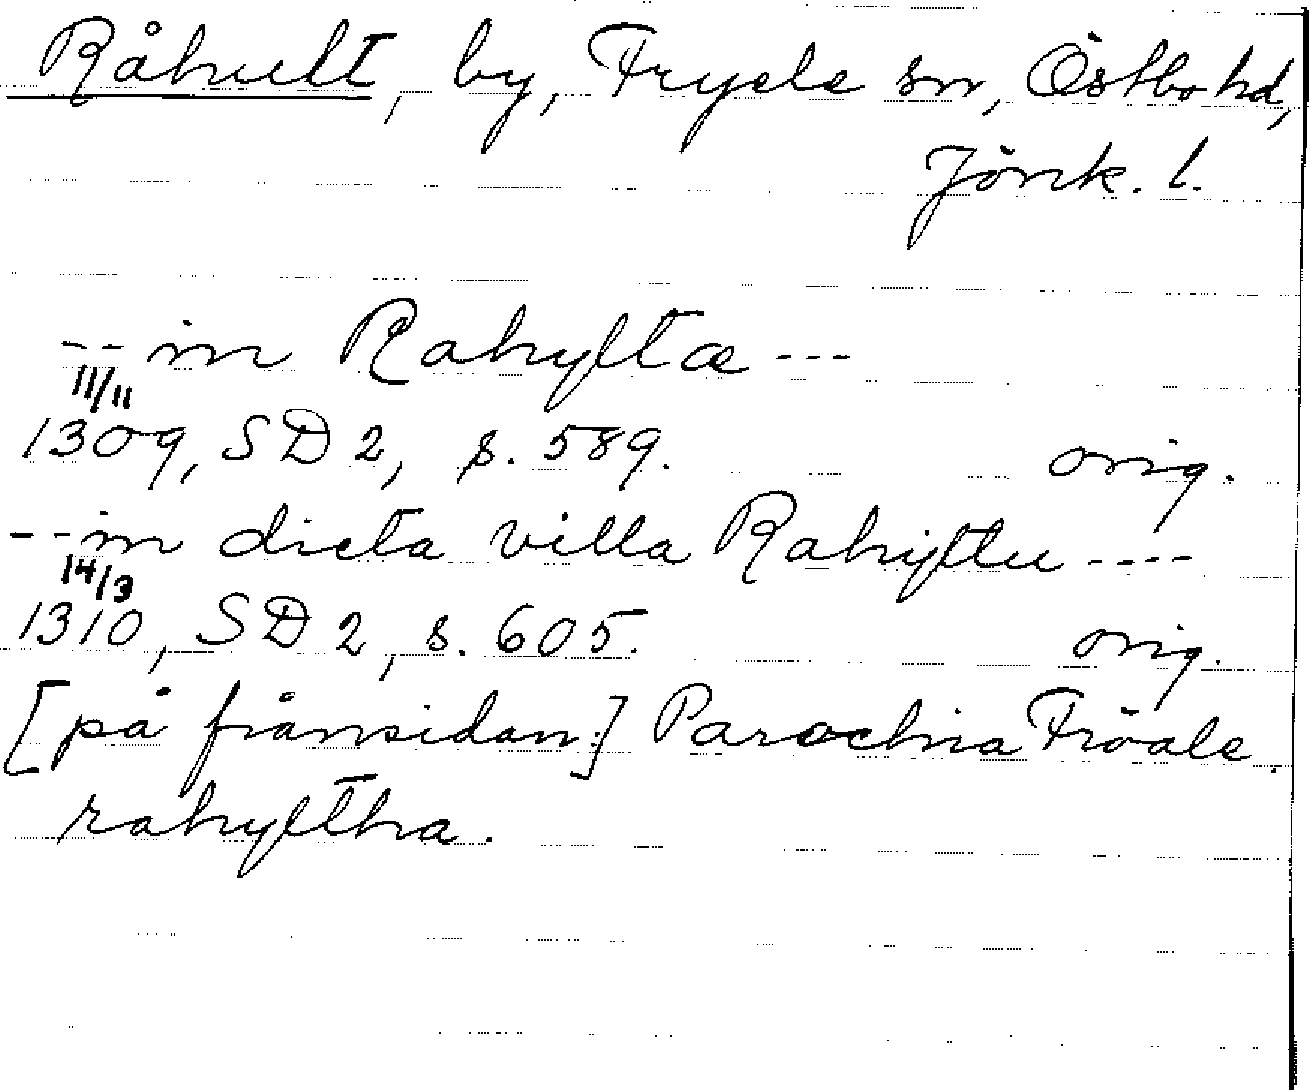 Råhult, by, Fryele sn, Östbo hd,
Jönk. l.
-- in Rahyltæ ---
11/11
1309, SD 2, s. 589. orig.
-- in dicta villa Rahyltu ----
14/3
1310, SD 2, s. 605. orig.
[på frånsidan:] Parochia Fröale.
rahyltha.